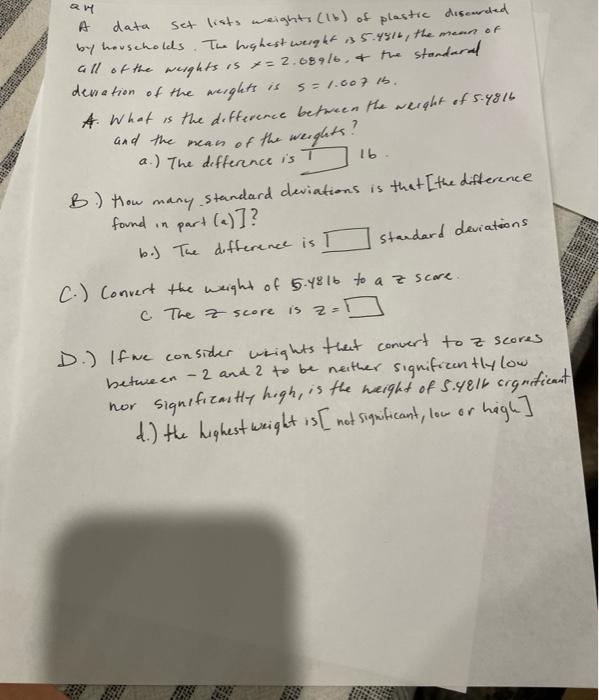 Q4
A data set lists weights (lb) of plastic discarded
by households. The highest weight is 5.48lb, the mean of
all of the weights is x = 2.089lb, & the standard
deviation of the weights is s = 1.007 lb.
A. What is the difference between the weight of 5.48lb
and the mean of the weights?
a.) The difference is lb.
B.) How many standard deviations is that [the difference
found in part (a)]?
b.) The difference is standard deviations
C.) Convert the weight of 5.48lb to a z score.
C The z score is z =
D.) If we consider weights that convert to z scores
between -2 and 2 to be neither significantly low
nor significantly high, is the weight of 5.48lb significant
d.) the highest weight is [not significant, low or high]